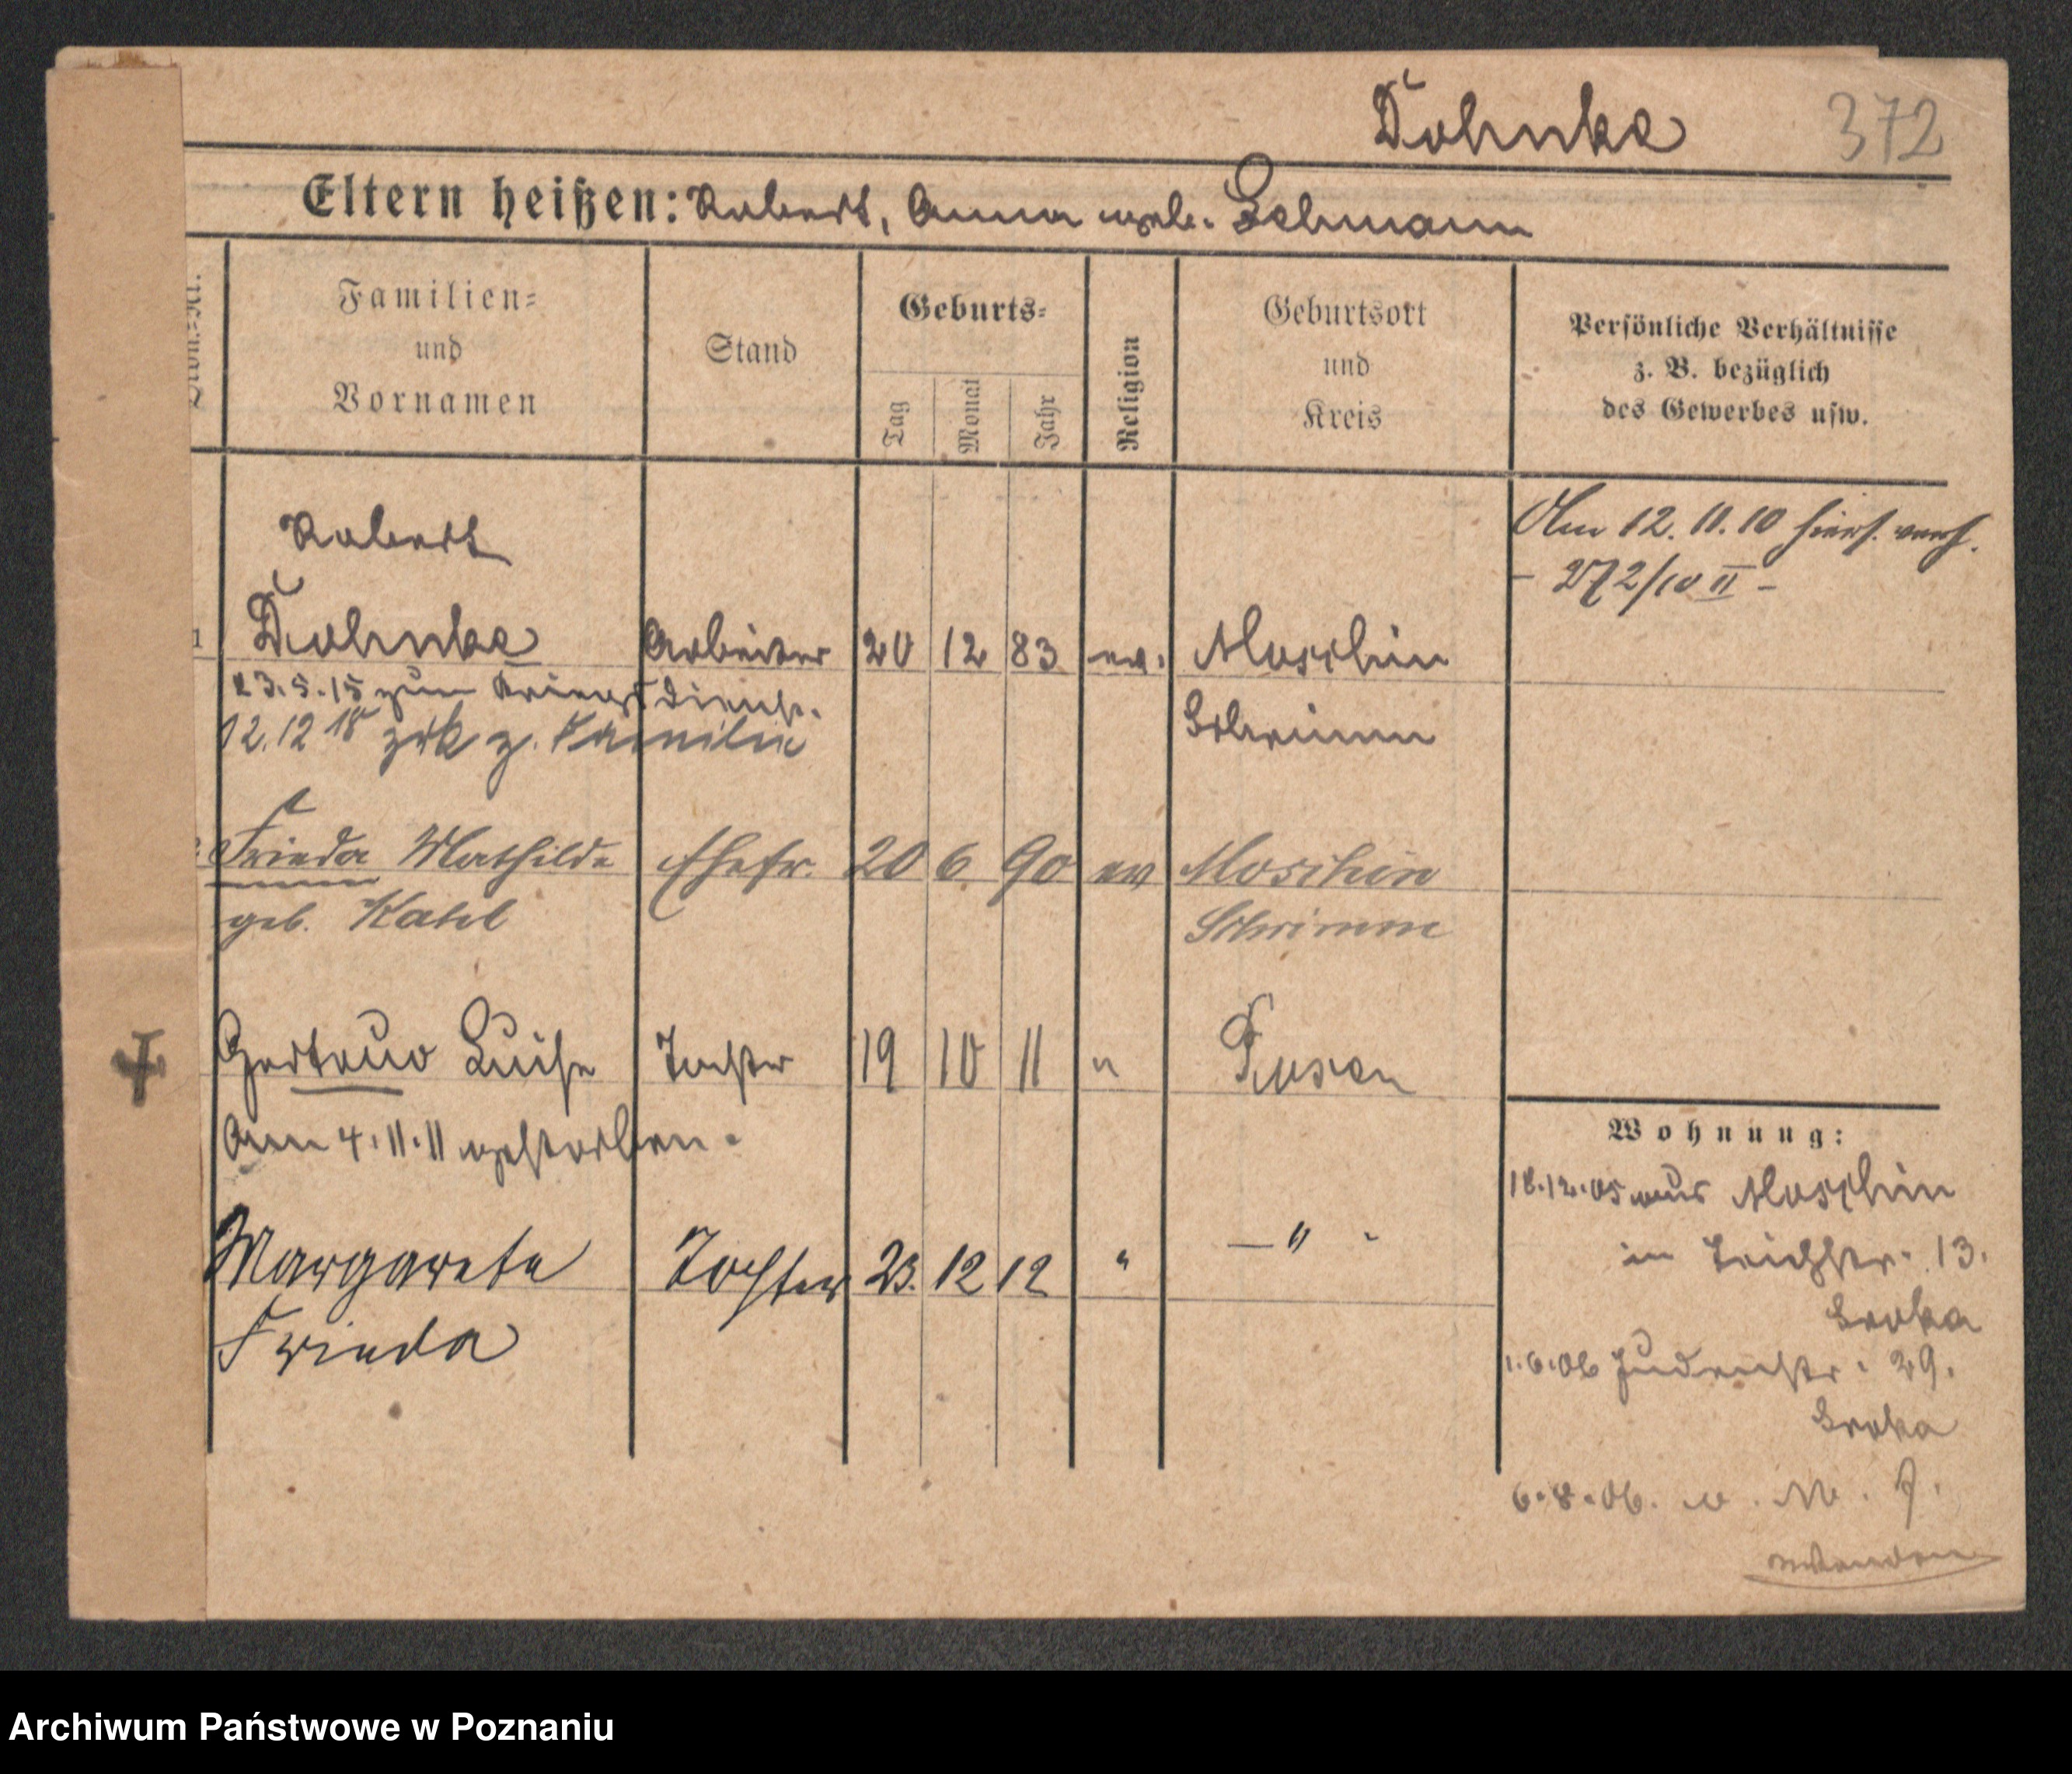 Dohnke 372
Eltern heißen: Robert, Anna geb. Lehmann
Familien=
und
Vornamen
Stand
Geburts=
Tag
Monat
Jahr
Religion
Geburtsort
und
Kreis
Persönliche Verhältnisse
z. B. bezüglich
des Gewerbes usw.
Am 12. 11. 10 hiers. verh.
- 272/10 II -
Robert
1 Dohnke Arbeiter 20 12 83 ev. Moschin
23.5.15 zum Kriegsdienst.
Schrimm
12.12 18 zrk z. Familie
Frieda Mathilde Ehefr. 20 6 90 ev Moschin
geb. Kahl Schrimm
Gertrud Luise Tochter 19 10 11 " Posen
Am 4.11.11 gestorben.
Margarete Tochter 23. 12 12 " — " -
Frieda
Wohnung:
18.12.05 aus Moschin
in Teichstr. 13.
Sroka
1.6.06 Judenstr. 29.
Sroka
6.8.06.
Archiwum Państwowe w Poznaniu